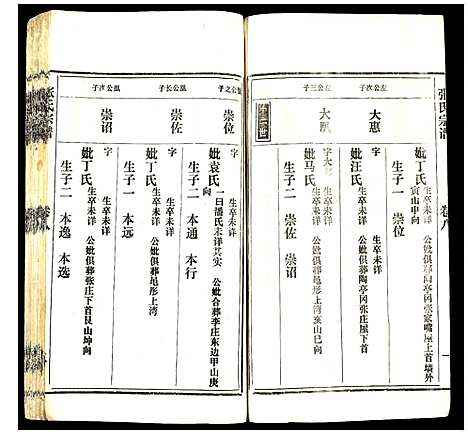 張氏宗譜
卷八
妣丁氏生卒未详 公妣俱葬陶亭冈张家嘴屋上首墙外
寅山申向
生子一 崇位
左公次子
大惠
字 生卒未详
妣汪氏生卒未详 公妣俱葬陶亭冈张庄屋下首
左公三子
大
字大 生卒未详
妣马氏生卒未详 公妣俱葬地形上湾亥山巳向
生子二 崇佐 崇诏
公之子
崇位
字 生卒未详
妣袁氏一曰潘氏未详其实 公妣合葬李庄东边甲山庚
向
生子二 本通 本行
公长子
崇佐
字 生卒未详
妣丁氏生卒未详 公妣俱葬地形上湾
生子一 本远
公次子
崇诏
字 生卒未详
妣丁氏生卒未详 公妣俱葬张庄下首艮山坤向
生子二 本逸 本选